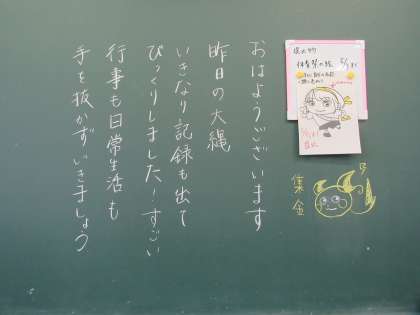 おはようございます
昨日の大縄
いきなり記録も出て
びっくりしました！すごい
行事も日常生活も
手を抜かずいきましょう
提出物
体育祭の絵
集金